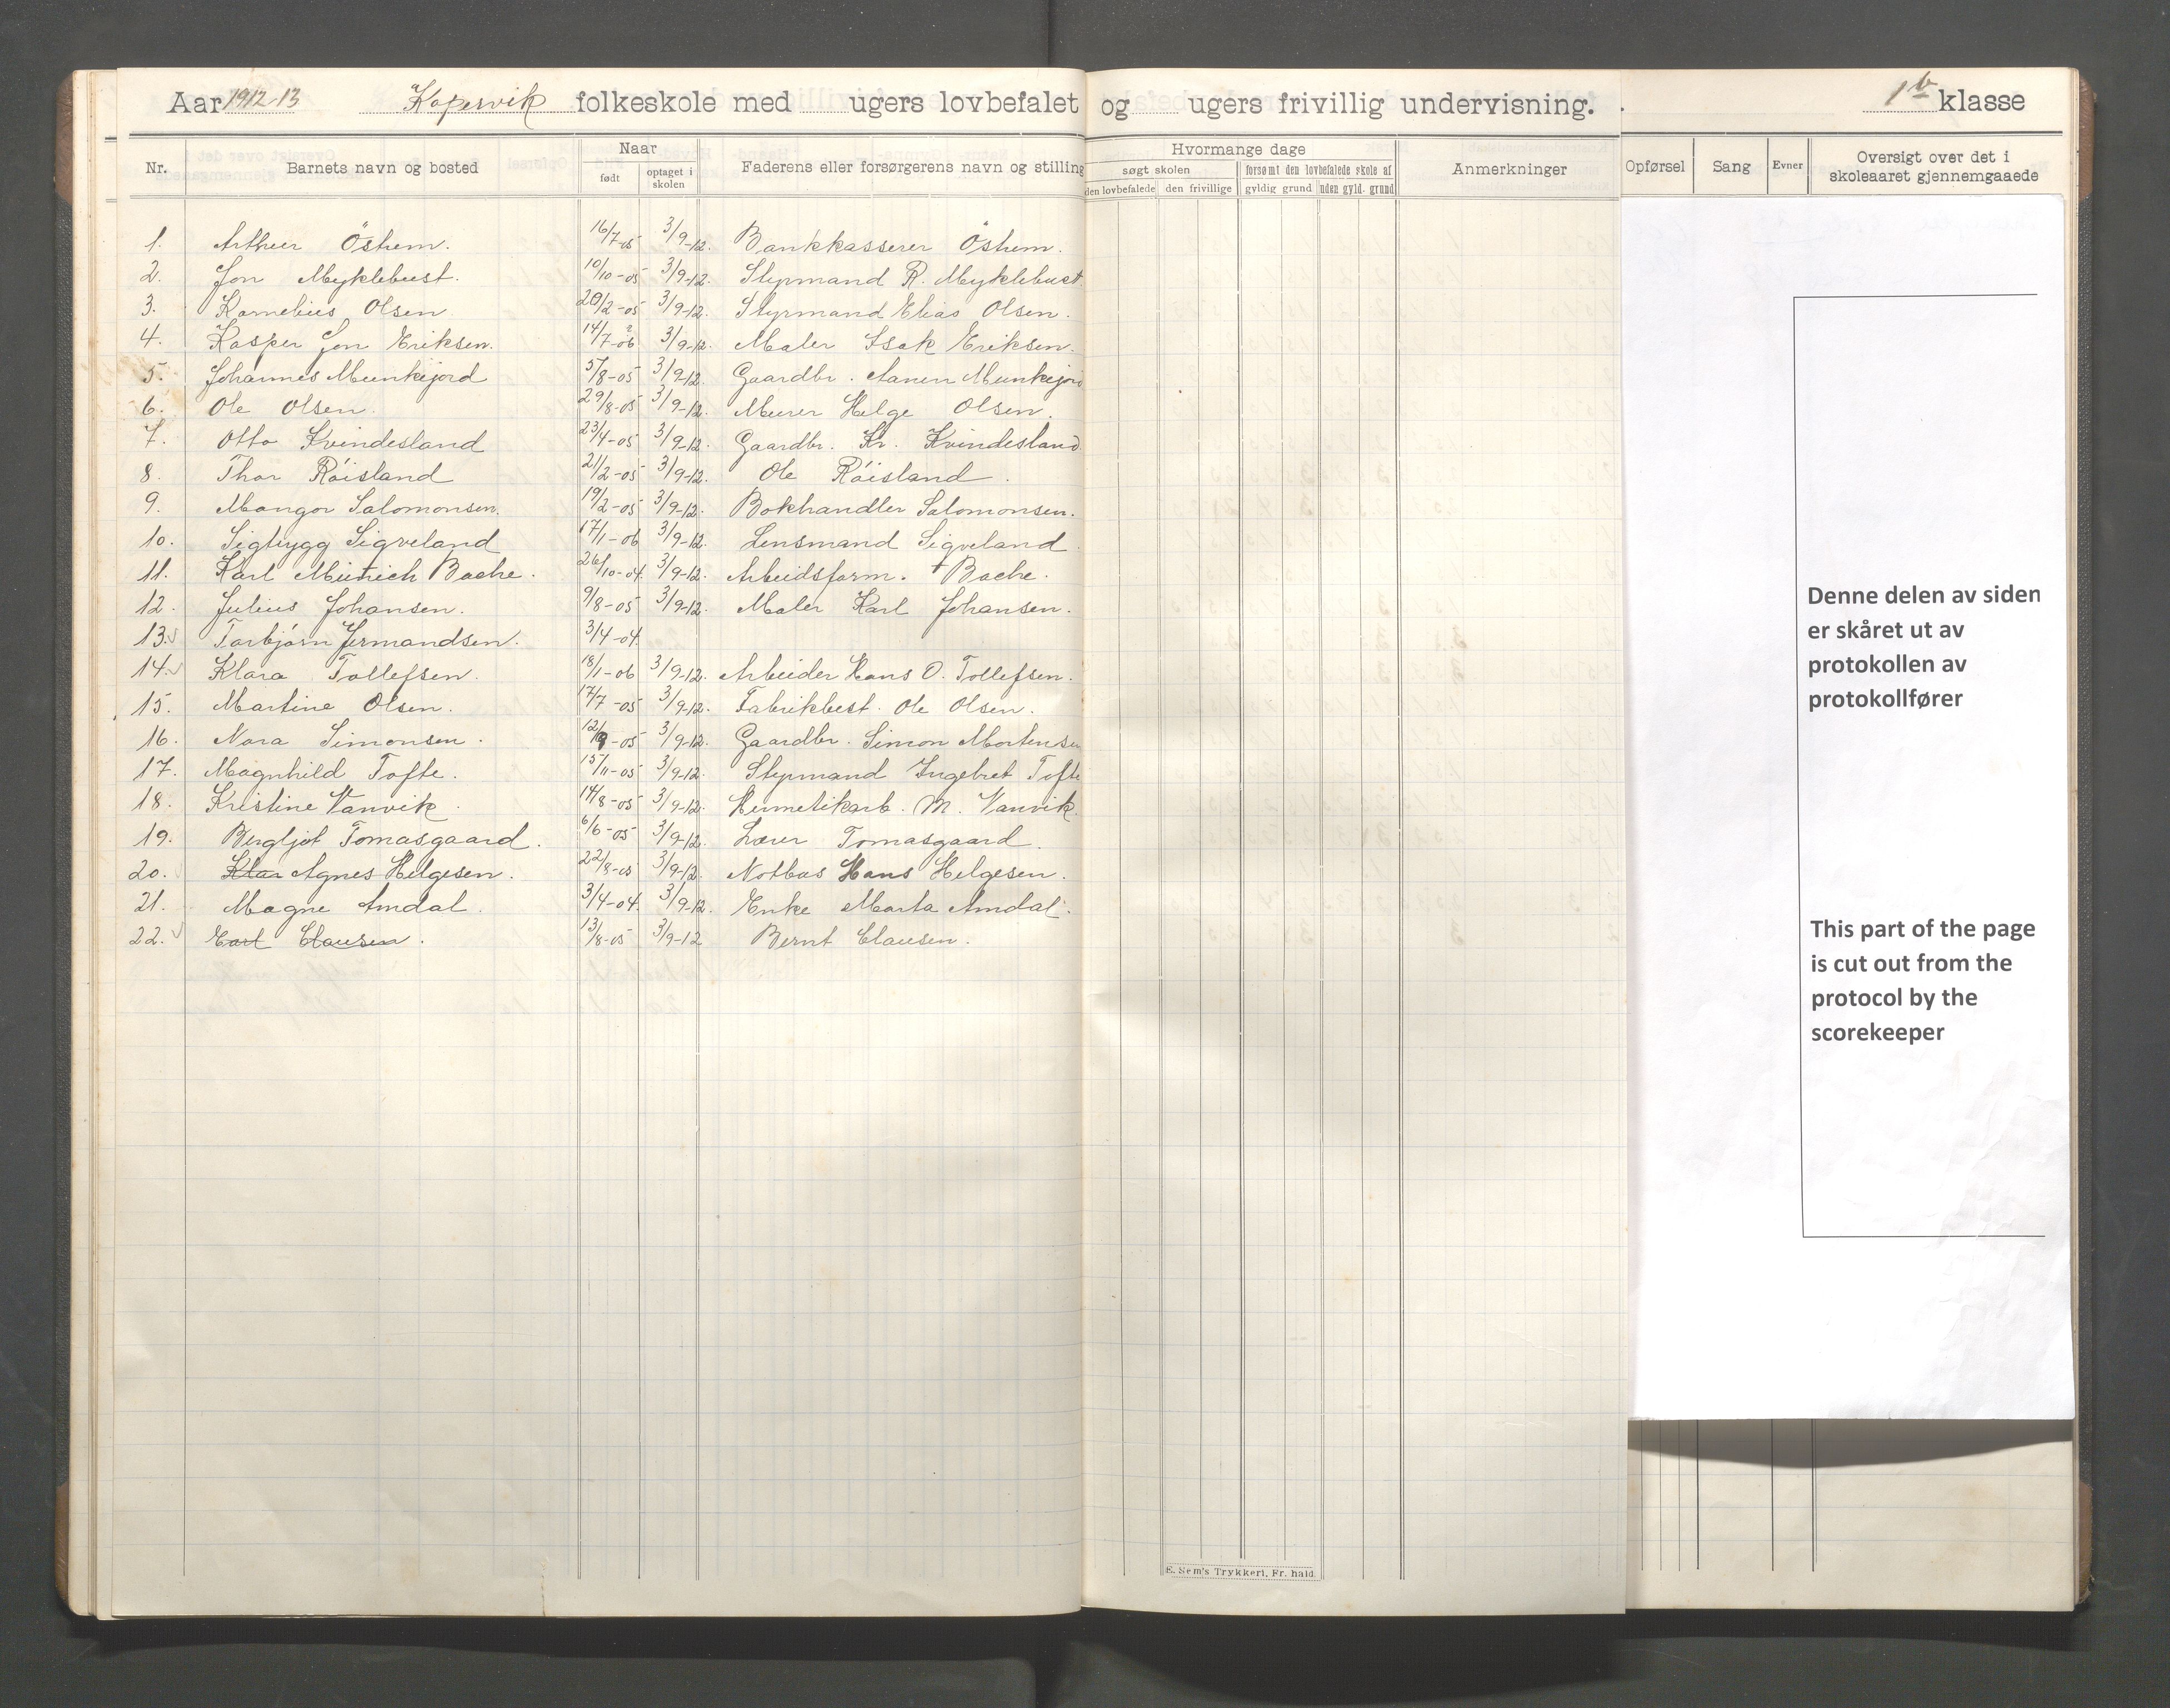 Aar 1912-13 Kopervik folkeskole med ugers lovbefalet og ugers frivillig undervisning. 1b klasse
Nr. Barnets navn og bosted Naar født optaget i skolen Faderens eller forsørgerens navn og stilling Hvormange dage søgt skolen den lovbefalede den frivillige forsømt den lovbefalede skole af gyldig grund uden gyld. grund Anmerkninger Opførsel Sang Evner Oversigt over det i skoleaaret gjennemgaaede
1. Arthur Östrem. 16/7-05 3/9-12. Bankkasserer Östrem.
2. Jon Myklebust. 10/10-05 3/9-12. Styrmand R. Myklebust
3. Kornelius Olsen 20/2-05 3/9-12. Styrmand Elias Olsen.
4. Kasper Jon Eriksen. 14/7-06 3/9-12. Maler Isak Eriksen.
5. Johannes Munkejord 5/8-05 3/9-12. Gaardbr. Aanen Munkejord
6. Ole Olsen. 29/8-05 3/9-12. Murer Helge Olsen.
7. Otto Kvindesland 23/4-05 3/9-12. Gaardbr. Kr. Kvindesland
8. Thor Röisland 21/2-05 3/9-12. Ole Röisland.
9. Mangor Salomonsen. 19/2-05 3/9-12. Bokhandler Salomonsen.
10. Sigtrygg Sigveland 17/1-06 3/9-12. Lensmand Sigveland
11. Karl Bache. 26/10-04. 3/9-12. Arbeidsform. Bache.
12. Julius Johansen. 9/8-05 3/9-12. Maler Karl Johansen.
13. Torbjörn Jermandsen. 3/4-04.
14. Klara Tollefsen. 18/1-06 3/9-12. Arbeider Hans O. Tollefsen.
15. Martine Olsen. 17/7-05 3/9-12. Fabrikbest. Ole Olsen.
16. Nora Simonsen. 12/9-05 3/9-12. Gaardbr. Simon Mortensen
17. Magnhild Tofte. 15/11-05 3/9-12. Styrmand Ingebret Tofte
18. Kristine Vanvik. 14/8-05 3/9-12. Hermetikarb. M. Vanvik.
19. Bergljot Tomasgaard. 6/6-05 3/9-12. Lærer Tomasgaard.
20. Klar Agnes Helgesen. 22/8-05 3/9-12. Notbas Hans Helgesen.
21. Magne Amdal. 3/4-04. 3/9-12. Enke Marta Amdal.
22. Earl Clausen. 13/8-05 3/9-12 Bernt Clausen.
Denne delen av siden
er skåret ut av
protokollen av
protokollfører
This part of the page
is cut out from the
protocol by the
scorekeeper
E. Sem's Trykkeri, Fr. hald.